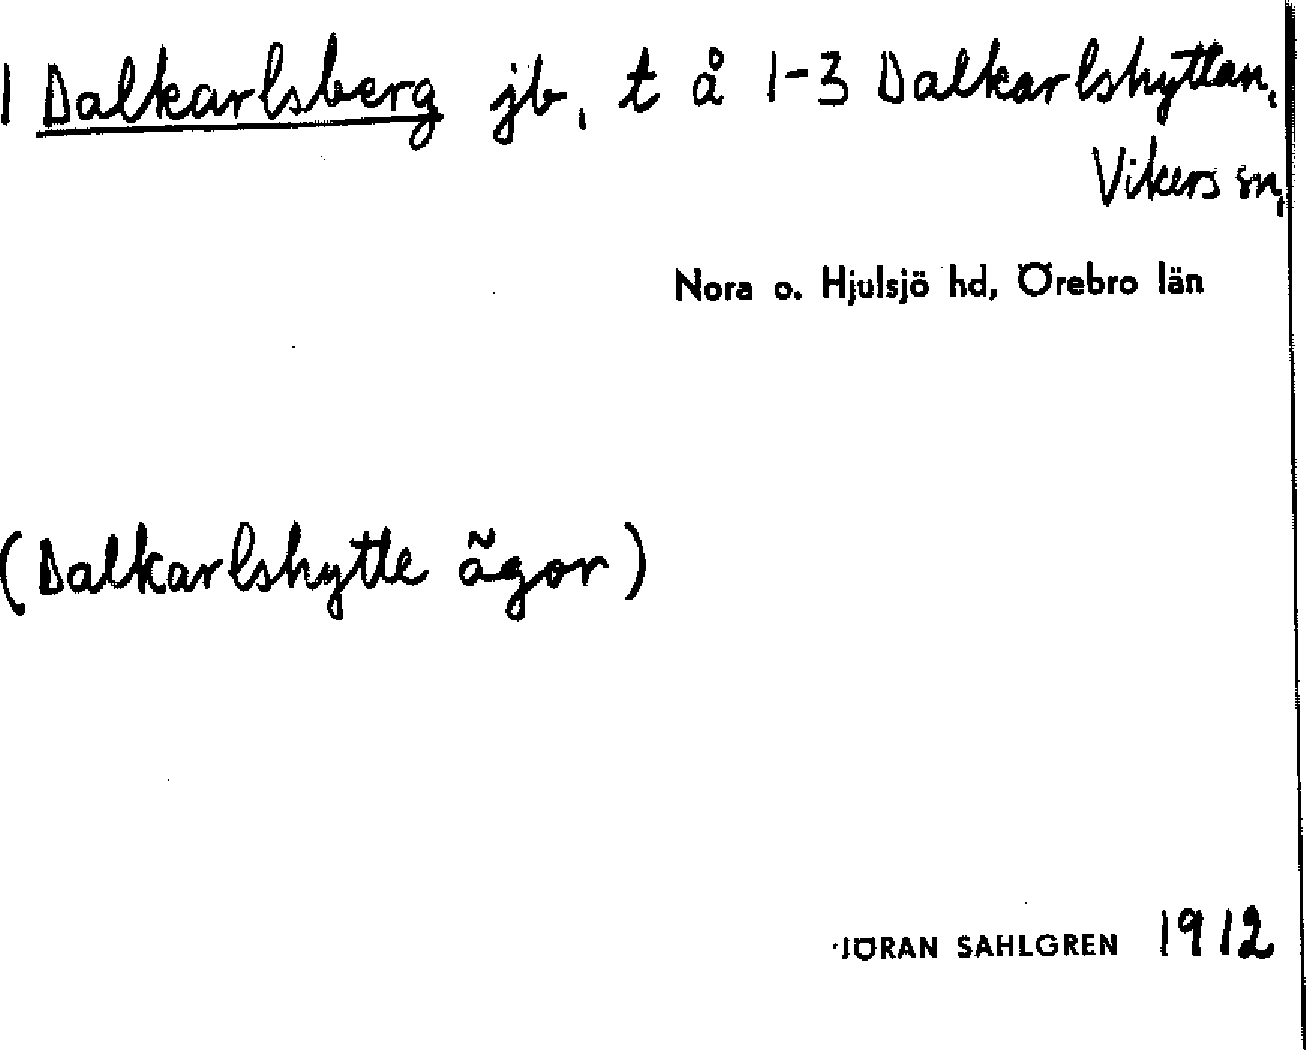 1 Dalkarlsberg jb, t å 1-3 Dalkarlshyttan,
Vikers sn,
Nora o. Hjulsjö hd, Örebro län
(Dalkarlshytte ägor)
JÖRAN SAHLGREN 1912